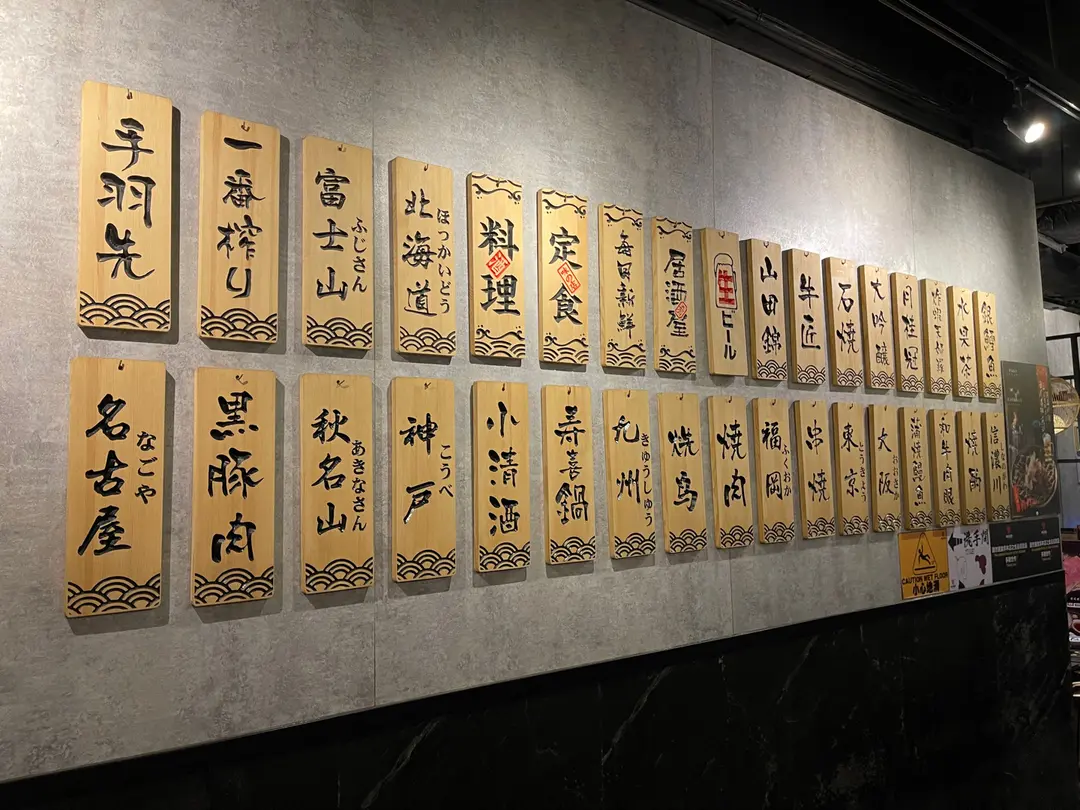 手羽先
一番搾り
富士山
ふじさん
北海道
ほっかいどう
料理
定食
毎日新鮮
居酒屋
生
ビール
山田錦
牛匠
石焼
大吟醸
月桂冠
水果茶
銀鱈魚
名古屋
なごや
黒豚肉
秋名山
あきなさん
神戸
こうべ
小清酒
寿喜鍋
九州
きゅうしゅう
焼鳥
焼肉
福岡
ふくおか
串焼
東京
とうきょう
大阪
おおさか
蒲焼鰻魚
和牛肉眼
信濃川
CAUTION WET FLOOR
小心地滑
洗手間